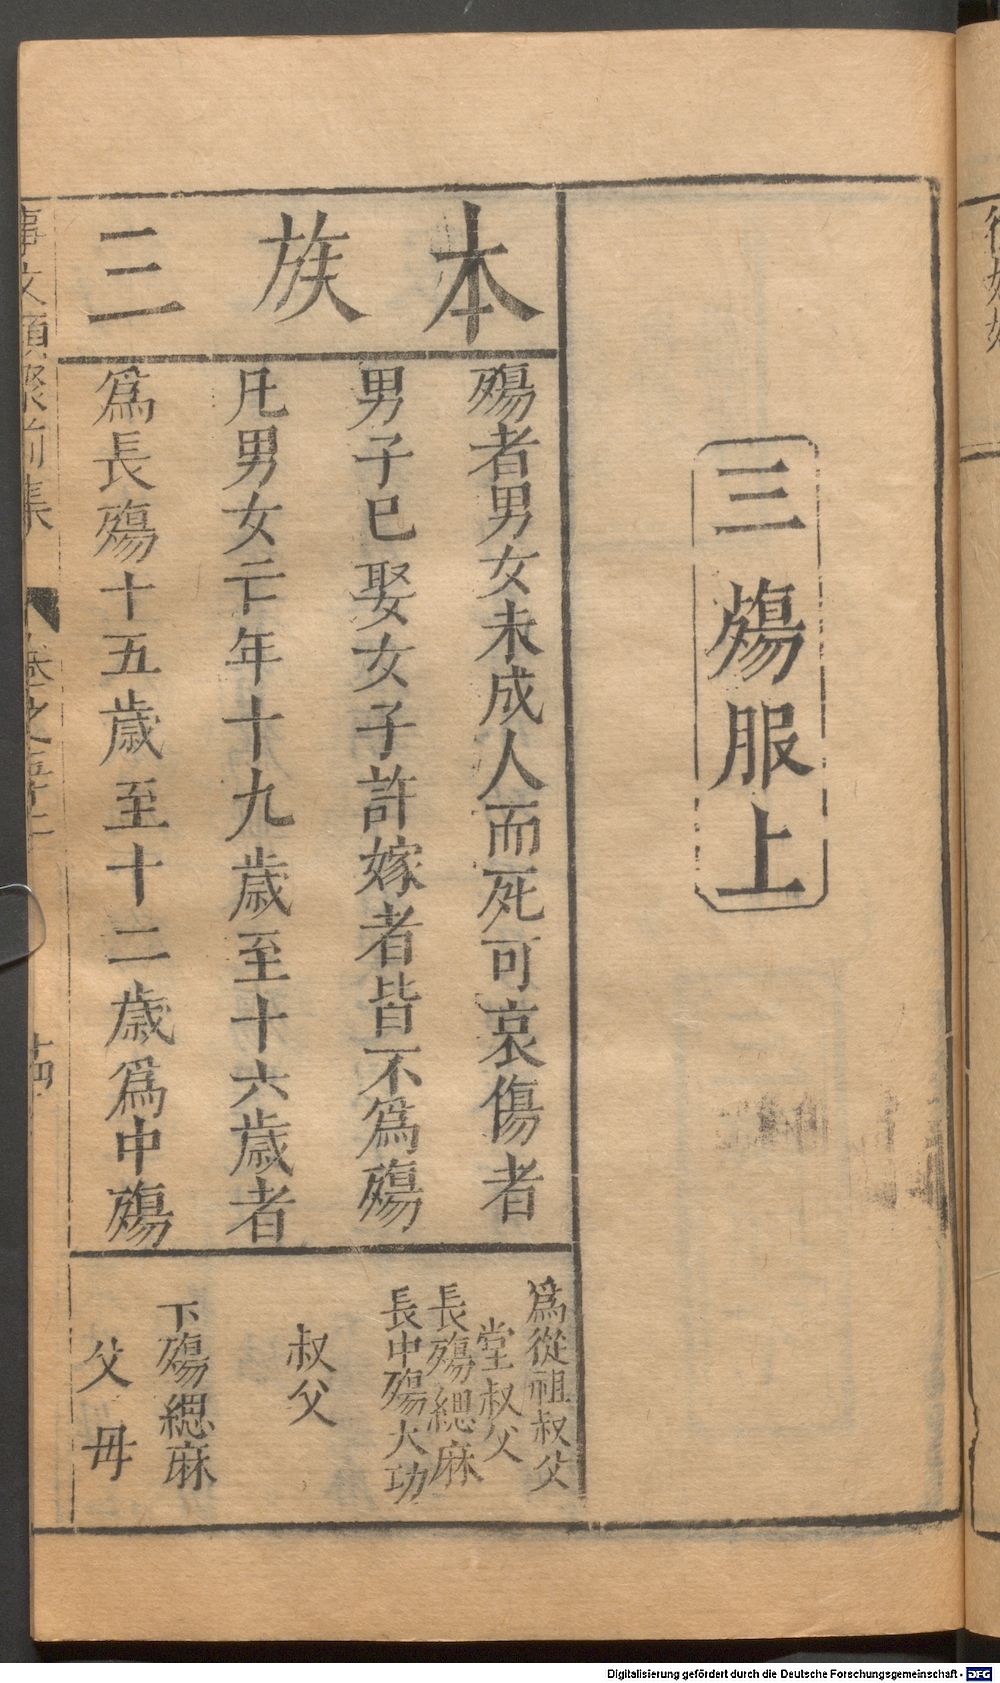 三殤服上
本族三
殤者男女未成人而死可哀傷者
男子已娶女子許嫁者皆不爲殤
凡男女亡年十九歲至十六歲者
爲長殤十五歲至十二歲爲中殤
爲從祖叔父
堂叔父
長殤緦麻
長中殤大功
叔父
下殤緦麻
父母
事文類聚前集
卷之五十二
Digitalisierung gefördert durch die Deutsche Forschungsgemeinschaft - DFG